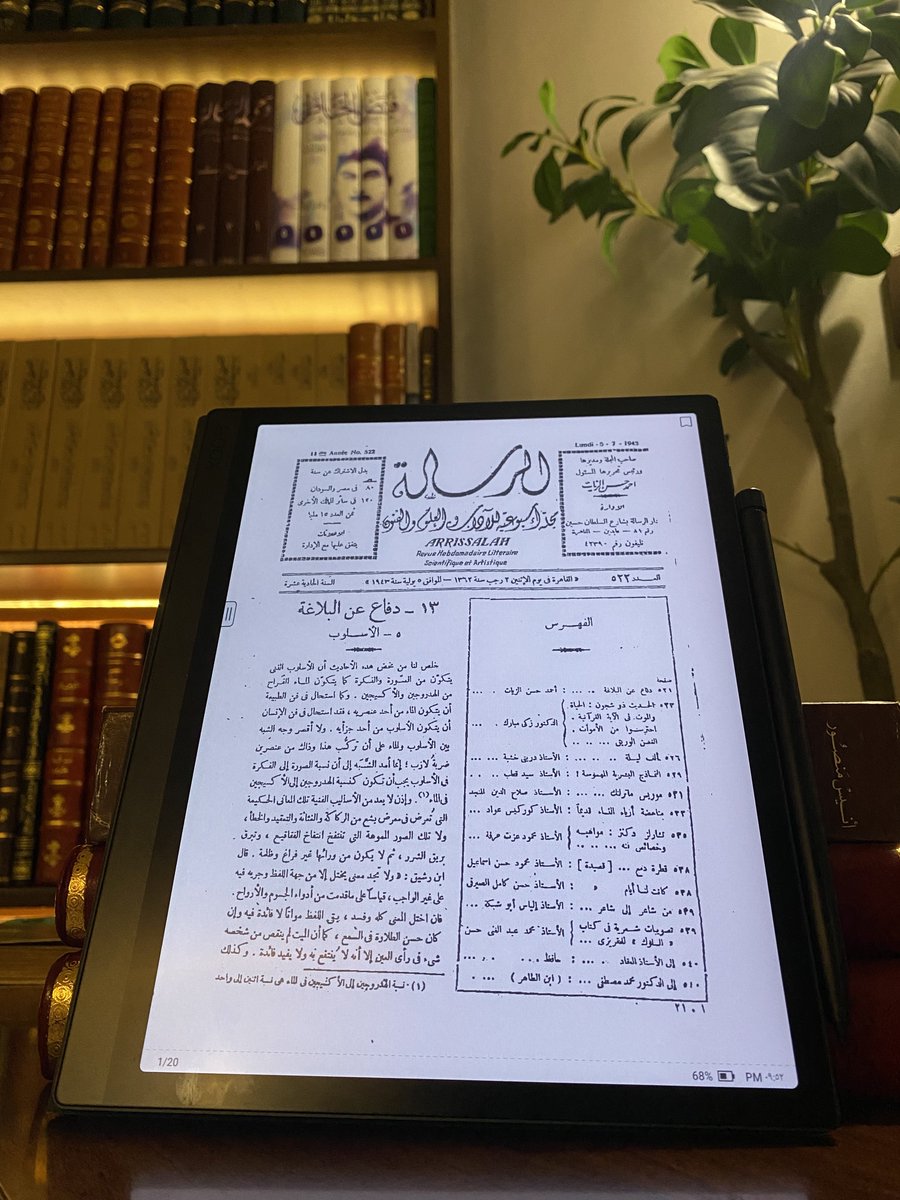 فيض الخاطر
11 ème Année No. 522
Lundi - 5 - 7 - 1943
بدل الاشتراك عن سنة
٨٠ فى مصر والسودان
١٢٠ فى سائر الممالك الأخرى
ثمن العدد ١٥ مليا
الاعلانات
يتفق عليها مع الإدارة
الرسالة
مجلة أسبوعية للآداب والعلوم والفنون
ARRISSALAH
Revue Hebdomadaire Litteraire
Scientifique et Artistique
صاحب المجلة ومديرها
ورئيس تحريرها المسئول
احمد حسن الزيات
الادارة
دار الرسالة بشارع السلطان حسين
رقم ٨١ — عابدين — القاهرة
تليفون رقم ٤٢٣٩٠
العـــدد ٥٢٢
« القاهرة فى يوم الإثنين ٢ رجب سنة ١٣٦٢ — الموافق ٥ يولية سنة ١٩٤٣ »
السنة الحادية عشرة
الفهرس
صفحة
٥٢١ دفاع عن البلاغة ... ... : أحمد حسن الزيات ... ...
٥٢٣ الحديث ذو شجون : الحياة
والموت فى الآية القرآنية .
احترسوا من الأموات .
الغصن الوريق ... ... ...
الدكتور زكى مبارك ... ...
٥٢٦ ألف ليلة ... ... ... : الأستاذ دريني خشبة ... ...
٥٢٩ النماذج البشرية المهموسة ! : الأستاذ سيد قطب ... ...
٥٣١ موريس ماترلنك ... ... : الأستاذ صلاح الدين المنجد
٥٣٣ مناهضة أزياء النساء قديماً : الأستاذ كوركيس عواد ...
٥٣٥ تشارلز دكنز : مواهبه
وخصائص فنه ... ... ...
الأستاذ محمود عزت عرفة ...
٥٣٨ قطرة دمع ... [ قصيدة ] : الأستاذ محمود حسن اسماعيل
٥٣٨ كانت لنا أيام » : الأستاذ حسن كامل الصيرفى
٥٣٩ من شاعر إلى شاعر ... : الأستاذ إلياس أبو شبكة ...
٥٣٩ تصويبات شعرية فى كتاب
« السلوك » للمقريزى ...
الأستاذ محمد عبد الغنى حسن
٥٤٠ إلى الأستاذ العقاد ... ...
٥٤٠ إلى الدكتور محمد مصطفى ... : ( ابن الطاهر ) ... ...
١٣ — دفاع عن البلاغة
٥ — الأسلوب
خلص لنا من مخض هذه الأحاديث أن الأسلوب الفنى
يتكون من الصورة والفكرة كما يتكون الماء القراح
من الهدروجين والأكسيجين . وكما استحال فى فن الطبيعة
أن يتكون الماء من أحد عنصريه ، فقد استحال فى فن الإنسان
أن يتكون الأسلوب من أحد جزأيه . ولا أقصر وجه الشبه
بين الأسلوب والماء على أن تركُّب هذا وذاك من عنصرين
ضربةُ لازب ؛ إنما أمد الشَّبه إلى أن نسبة الصورة إلى الفكرة
فى الأسلوب يجب أن تكون كنسبة الهدروجين إلى الأكسيجين
فى الماء(١). وإذن لا يعد من الأساليب الفنية تلك المعانى الحكيمة
التى تُعرض فى معرض بشع من الركاكة والغثاثة والتعقيد والخطأ ،
ولا تلك الصور المموهة التى تنتفخ انتفاخ الفقاقيع ، وتبرق
بريق الشرر ، ثم لا يكون من ورائها غير فراغ وظلمة . قال
ابن رشيق : « ولا تجد معنى يختل إلا من جهة اللفظ وجريه فيه
على غير الواجب ، قياساً على ما قدمت من أدواء الجسوم والأرواح .
فإن اختل المعنى كله وفسد ، بقى اللفظ مواتاً لا فائدة فيه وإن
كان حسن الطلاوة فى السمع ، كما أن الميت لم ينقص من شخصه
شىء فى رأى العين إلا أنه لا يُنتفع به ولا يفيد فائدة . وكذلك
(١) نسبة الهدروجين إلى الأكسيجين فى الماء هى نسبة اثنين إلى واحد
٢١٠١
1/20
68%
PM ٠٩:٥٢